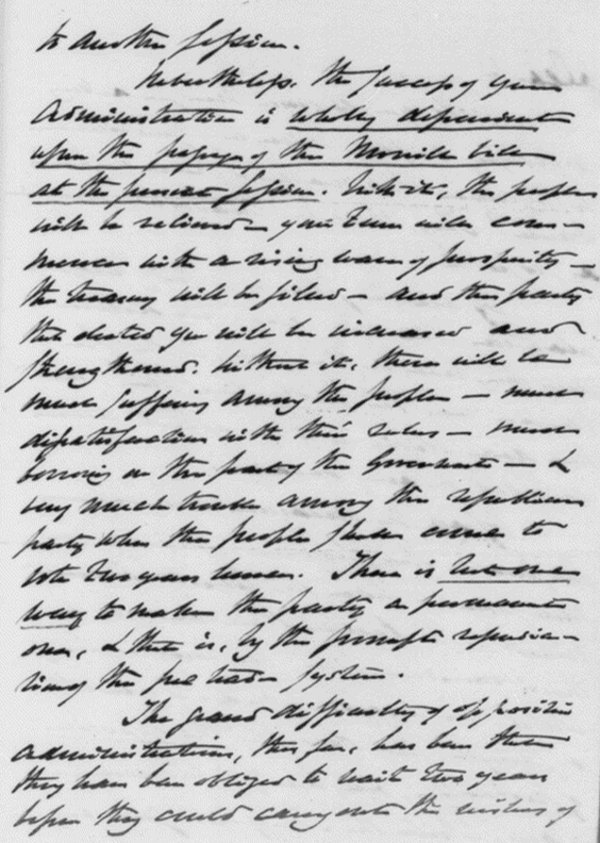 to another session.
Nevertheless, the success of your
administration is wholly dependent
upon the passage of the Morrill bill
at the present session. With it, the people
will be relieved — your term will com-
mence with a rising wave of prosperity —
the Treasury will be filled — and the party
that elected you will be increased and
strengthened. Without it, there will be
much suffering among the people — much
dissatisfaction with their rulers — much
borrowing on the part of the Government — &
very much trouble among the republican
party when the people shall come to
vote two years hence. There is but one
way to make the party a permanent
one, & that is, by the prompt repudia-
tion of the free trade system.
The grand difficulty of opposition
administrations, thus far, has been that
they have been obliged to wait two years
before they could carry out the wishes of